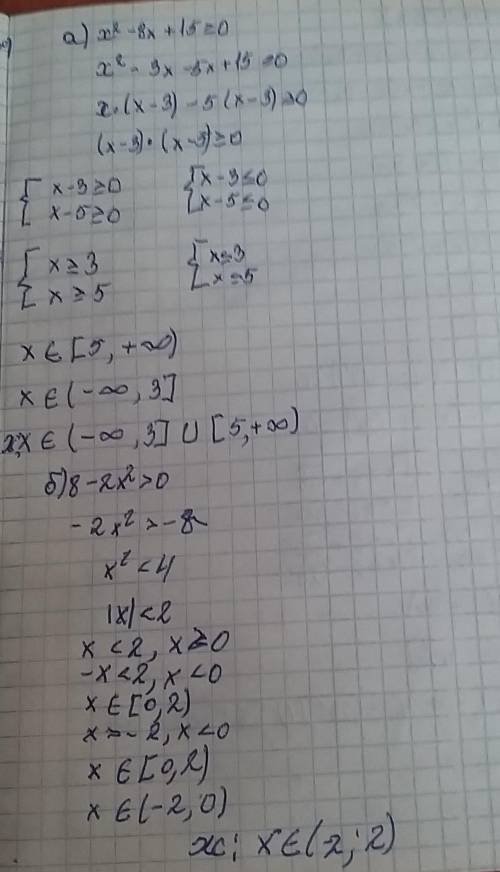 а) x² - 8x + 15 ≥ 0
x² - 3x - 5x + 15 ≥ 0
x·(x-3) - 5(x-3) ≥ 0
(x-3)·(x-5) ≥ 0
x-3≥0 x-3≤0
x-5≥0 x-5≤0
x≥3 x≤3
x≥5 x≤5
x∈[5,+∞)
x∈(-∞,3]
x∈(-∞,3] ∪ [5,+∞)
б) 8-2x²>0
-2x²>-8
x²<4
|x|<2
x<2, x≥0
-x<2, x<0
x∈[0,2)
x>-2, x<0
x∈[0,2)
x∈(-2,0)
ж: x∈(-2;2)